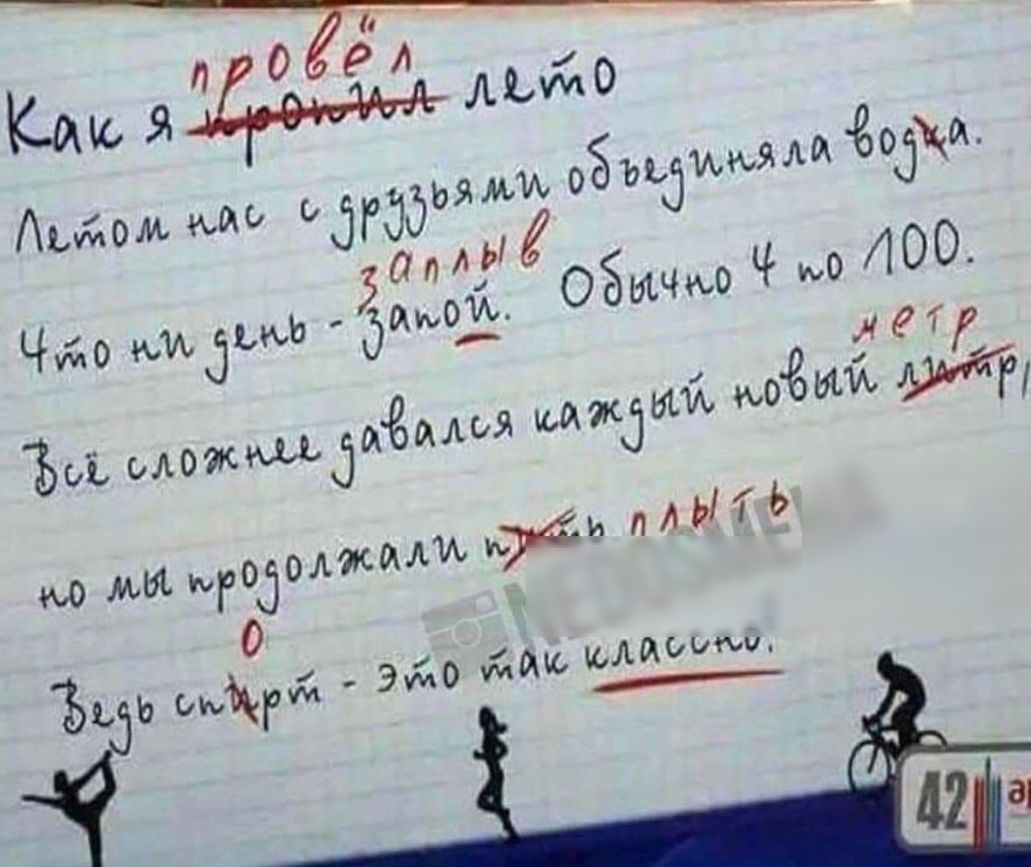 провёл
Как я пропил лето
Летом нас с друзьями объединяла водка.
заплыв
Что ни день - запой. Обычно 4 по 100.
метр
Всё сложнее давался каждый новый литр,
но мы продолжали пить плыть
о
Ведь спирт - это так классно!
42